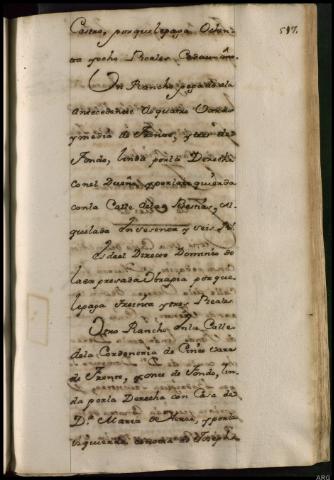 517.
Castro, por que le paga Ochen
ta y ocho Reales Cada un año.
Un Rancho pegado al
antecedente de quatro Varas
y media de frente, y tres de
Fondo, linda por la Derecha
con el Dueño, y por la izquierda
con la Calle de las Peñas, Al
quilada en sesenta y seis Rs.
Es del Directo Dominio de
la expresada Obrapia por que
le paga treinta y tres Reales
Otro Rancho en la Calle
de la Cordoneria de Cinco varas
de Frente, y Once de Fondo, lin
da por la Derecha con Casa de
Dª. Maria de y por la
izquierda con otra de Joseph
ARG